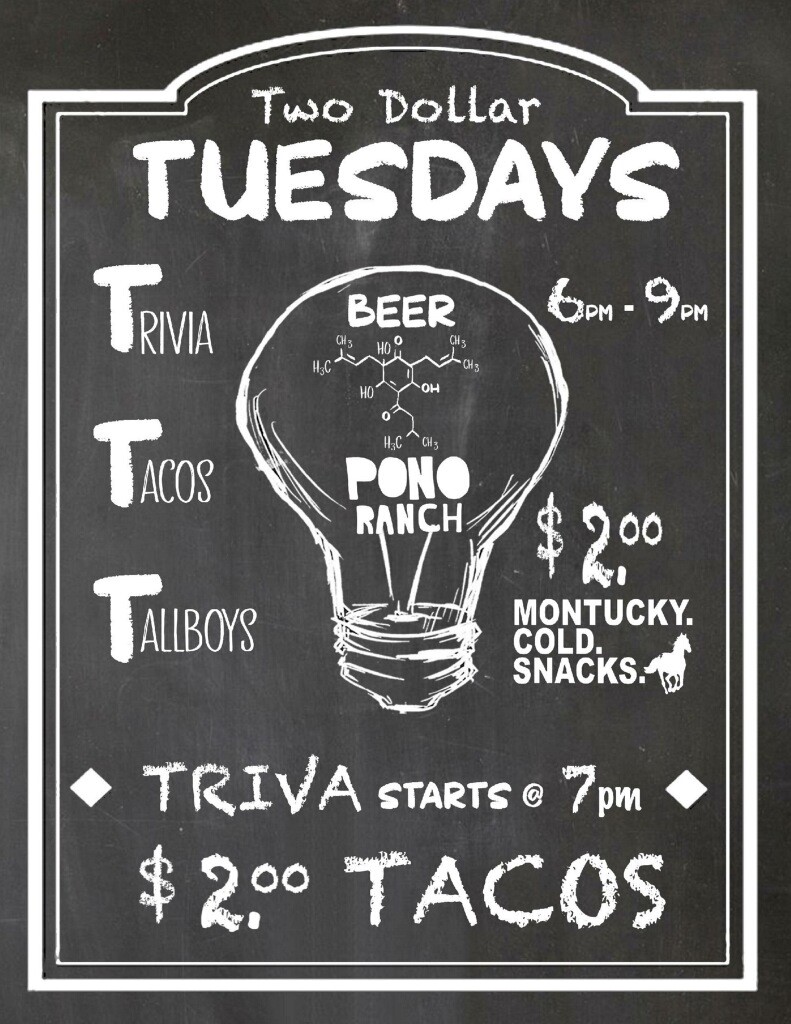 Two Dollar
TUESDAYS
TRIVIA
6PM - 9PM
BEER
CH3
H3C
HO
O
CH3
CH3
HO
OH
O
H3C
CH3
TACOS
PONO
RANCH
$2.00
MONTUCKY.
COLD.
SNACKS.
TALLBOYS
TRIVA STARTS @ 7pm
$2.00 TACOS